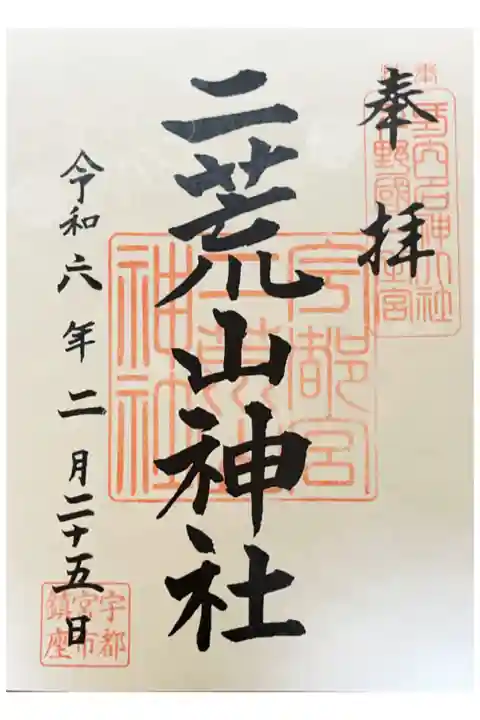 奉拝
延喜式内名神大社
下野國一之宮
二荒山神社
宇都宮
二荒山
神社
令和六年二月二十五日
宇都
宮市
鎮座